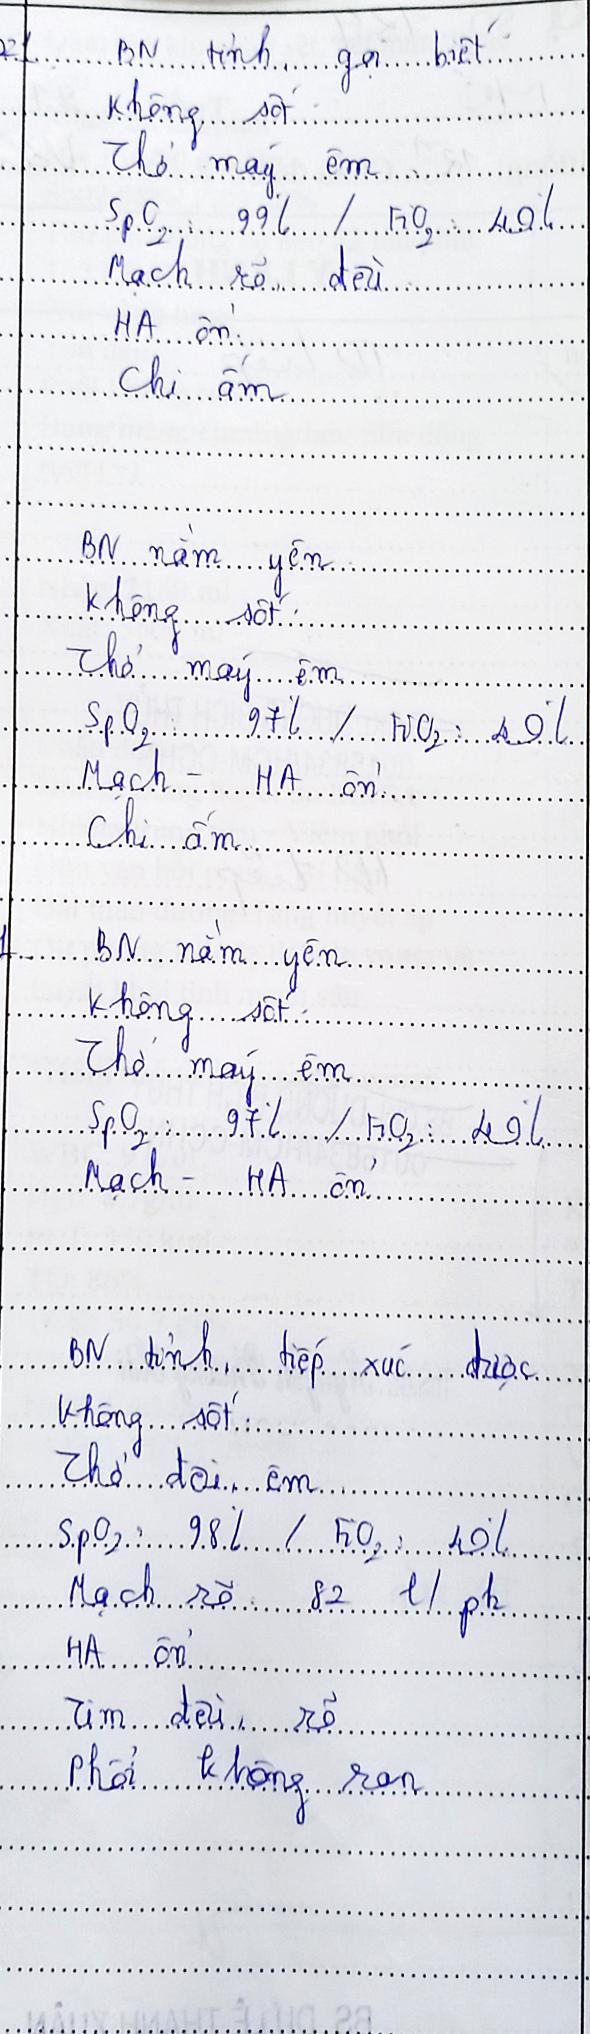 BN tỉnh, gọi biết
Không sốt
Thở máy êm
SpO2: 99% / FiO2: 40%
Mạch rõ, đều
HA ổn
Chi ấm
BN nằm yên
Không sốt
Thở máy êm
SpO2: 97% / FiO2: 40%
Mạch - HA ổn
Chi ấm
BN nằm yên
Không sốt
Thở máy êm
SpO2: 97% / FiO2: 40%
Mạch - HA ổn
BN tỉnh, tiếp xúc được
Không sốt
Thở đều, êm
SpO2: 98% / FiO2: 40%
Mạch rõ 82 l/ph
HA ổn
Tim đều, rõ
Phổi không ran